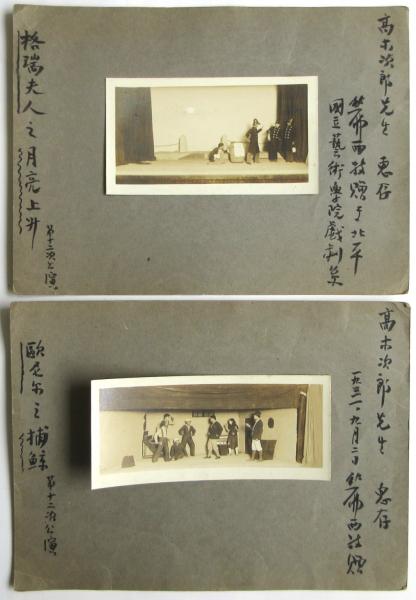 高木次郎先生 惠存
熊佛西敬贈于北平
國立藝術學院戲劇系
第十二次公演
格瑞夫人之月亮上升
高木次郎先生 惠存
一九三一,九月二日熊佛西敬贈
第十二次公演
歐尼尔之捕鯨